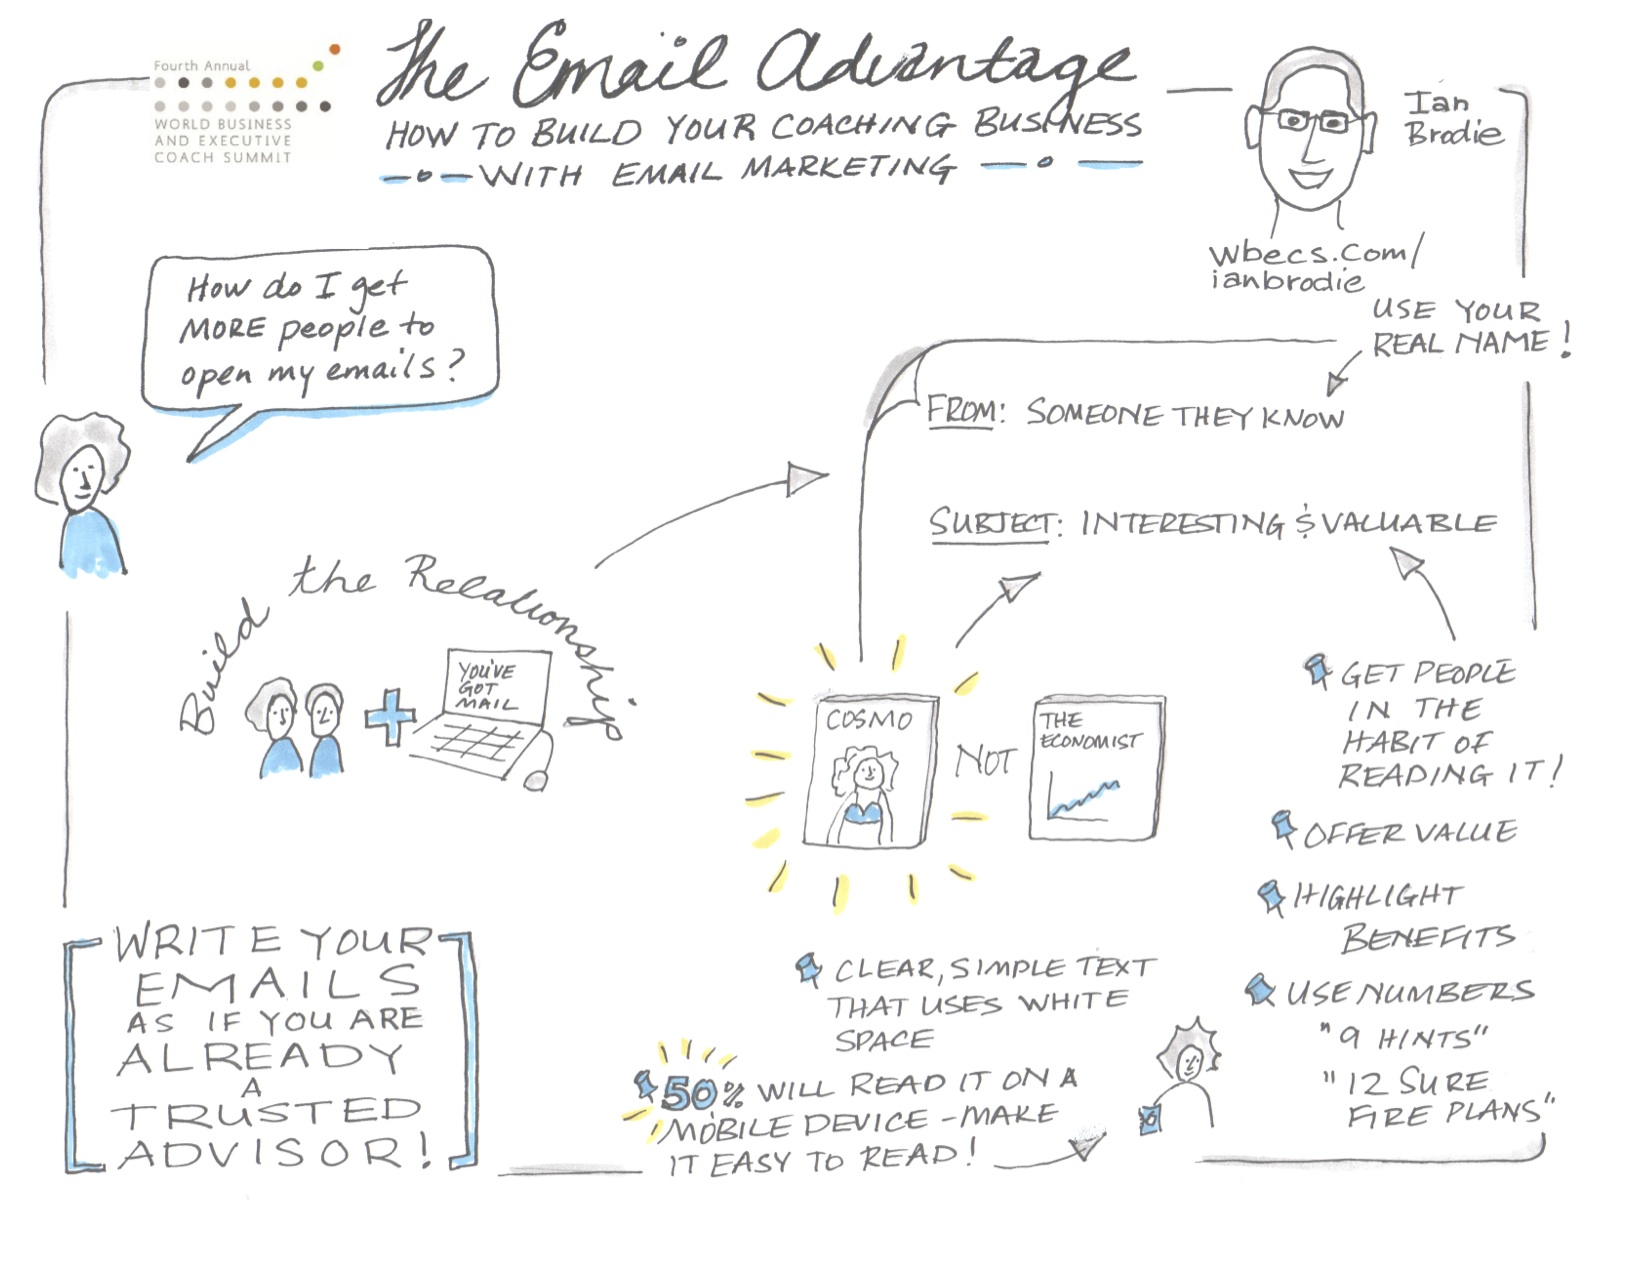 Fourth Annual
WORLD BUSINESS
AND EXECUTIVE
COACH SUMMIT
The Email Advantage
HOW TO BUILD YOUR COACHING BUSINESS
WITH EMAIL MARKETING
Ian
Brodie
wbecs.com/
ianbrodie
How do I get
MORE people to
open my emails?
USE YOUR
REAL NAME!
FROM: SOMEONE THEY KNOW
SUBJECT: INTERESTING & VALUABLE
Build the Relationship
YOU'VE
GOT
MAIL
COSMO
NOT
THE
ECONOMIST
GET PEOPLE
IN THE
HABIT OF
READING IT!
OFFER VALUE
HIGHLIGHT
BENEFITS
USE NUMBERS
"9 HINTS"
"12 SURE
FIRE PLANS"
WRITE YOUR
EMAILS
AS IF YOU ARE
ALREADY
A
TRUSTED
ADVISOR!
CLEAR, SIMPLE TEXT
THAT USES WHITE
SPACE
50% WILL READ IT ON A
MOBILE DEVICE - MAKE
IT EASY TO READ!